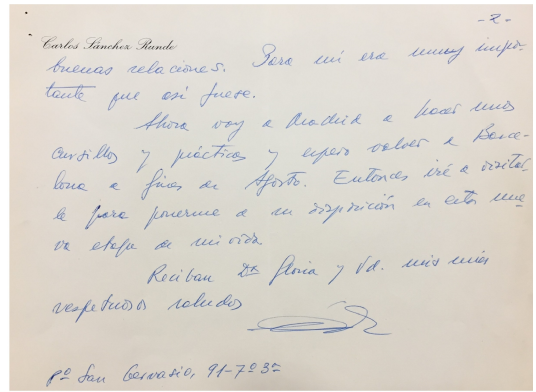 -2-
Carlos Sánchez Runde
buenas relaciones. Para mí era muy impor-
tante que así fuese.
Ahora voy a Madrid a hacer unos
cursillos y prácticas y espero volver a Barce-
lona a fines de Agosto. Entonces iré a visitar-
le para ponerme a su disposición en esta nue-
va etapa de mi vida.
Reciban Dª Gloria y Vd. mis más
respetuosos saludos
Pº San Gervasio, 91-7º 3ª